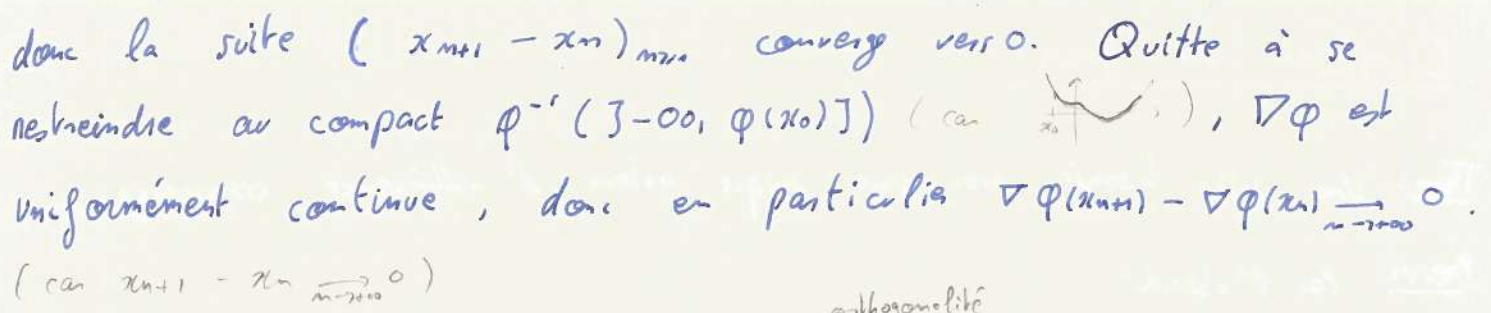 donc la suite ( xn+1 - xn )n≥0 converge vers 0. Quitte à se
restreindre au compact φ⁻¹ (]-∞, φ(x0)]) ( car x0 ), ∇φ est
uniformément continue, donc en particulier ∇φ(xn+1) - ∇φ(xn) → 0.
n→+∞
( car xn+1 - xn → 0 )
n→+∞
orthogonalité